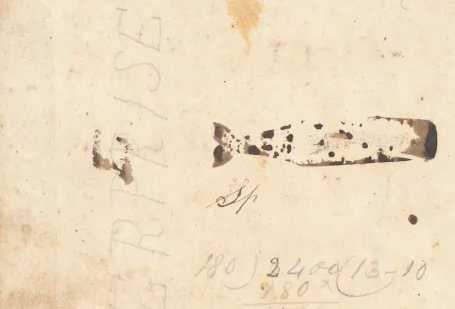 ERPRISE
Sp
180 ) 2400 ( 13-10
180